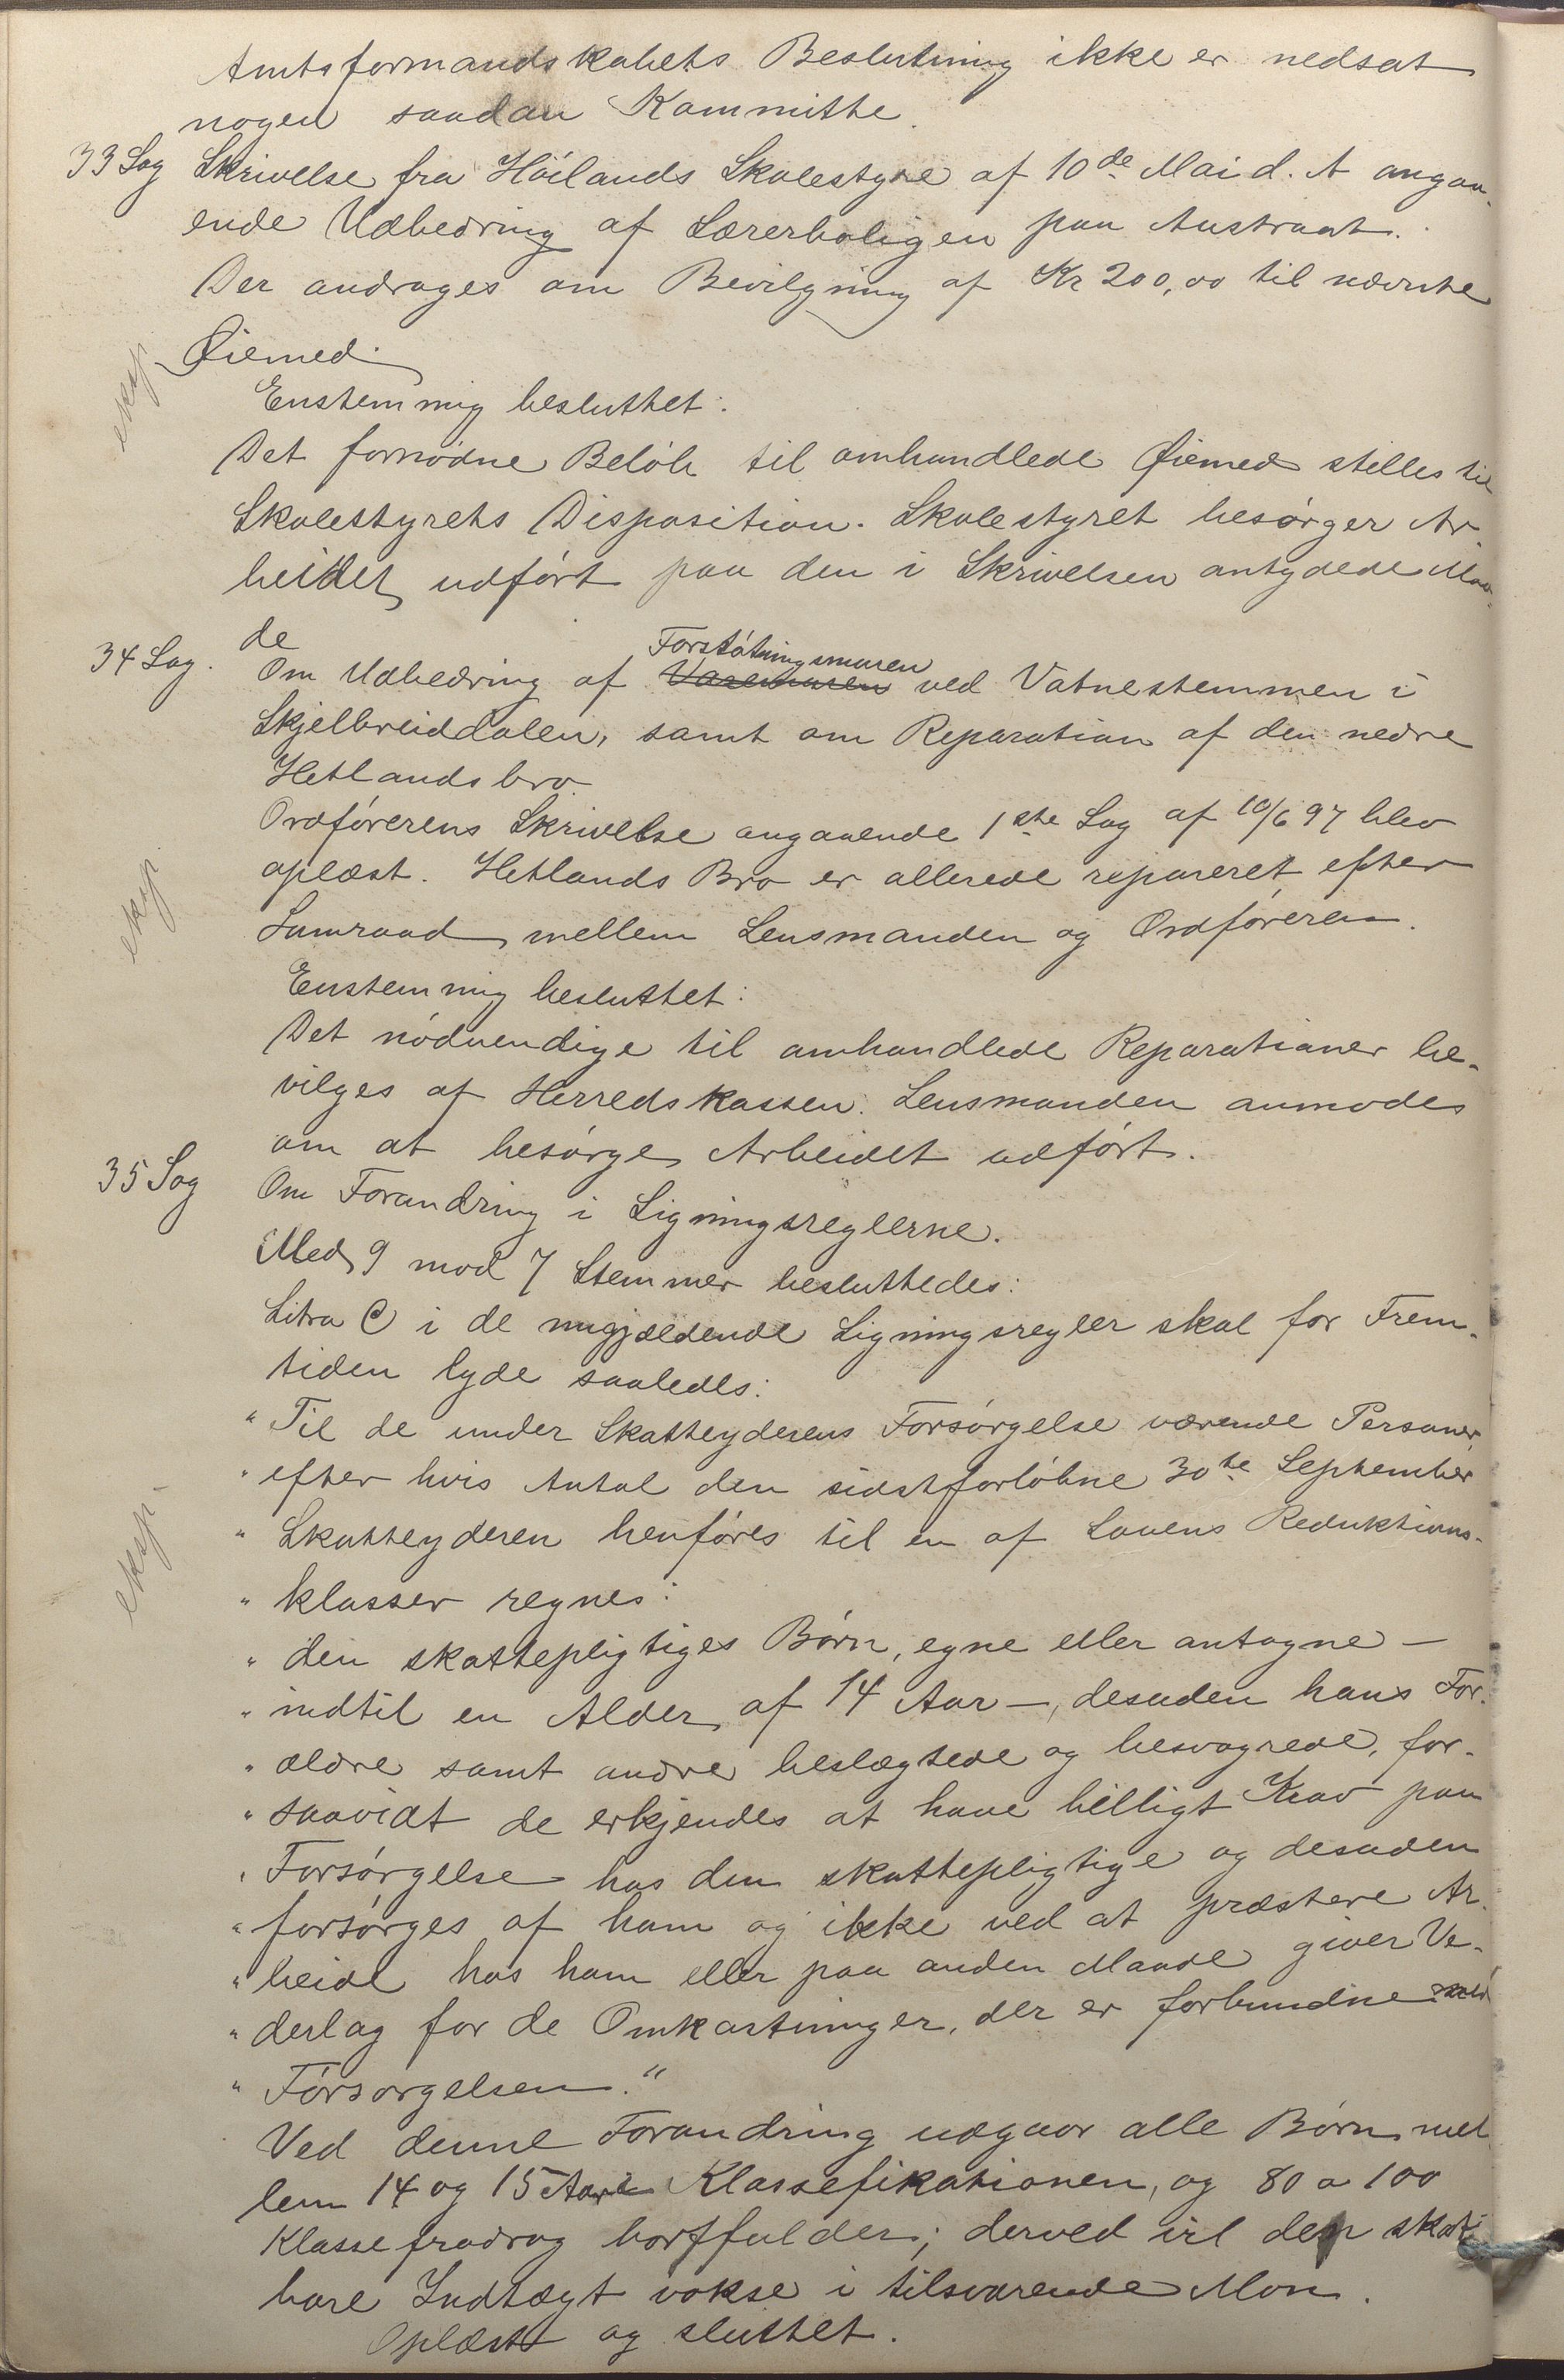 Amtsformandskabets Beslutning ikke er nedsat
nogen saadan Kommitthe.
33 Sag Skrivelse fra Höilands Skolestyre af 10de Mai d. A angaa-
ende Udbedring af Lærerboligen paa Austraat.
Der andrages om Bevilgning af Kr 200,00 til nævnte
Øiemed.
eksp.
Enstemmig besluttet:
Det fornödne Belöb til omhandlede Øiemed stilles til
Skolestyrets Disposition. Skolestyret besörger Ar-
beidet udfört paa den i Skrivelsen antydede Maa-
de
34 Sag. Om Udbedring af Varemuren Forstötningsmuren ved Vatnestemmen i
Skjelbreiddalen, samt om Reparation af den nedre
Hetlandsbro.
Ordförerens Skrivelse angaaende 1ste Sag af 10/6 97 blev
oplæst. Hetlands Bro er allerede repareret efter
eksp.
Samraad mellem Lensmanden og Ordföreren.
Enstemmig besluttet:
Det nödvendige til omhandlede Reparationer be-
vilges af Herredskassen. Lensmanden anmodes
om at besörge Arbeidet udfört.
35 Sag Om Forandring i Ligningsreglerne.
Med 9 mod 7 Stemmer besluttedes:
Litra C i de nugjældende Ligningsregler skal for Frem-
tiden lyde saaledes:
"Til de under Skatteyderens Forsörgelse værende Personer,
" efter hvis Antal den sidstforlöbne 30te September
" Skatteyderen henföres til en af Lovens Reduktions-
eksp.
" klasser regnes:
" den skattepligtiges Börn, egne eller antagne —
" indtil en Alder af 14 Aar —, desuden hans For-
" ældre samt andre beslægtede og besvogrede, for-
" saavidt de erkjendes at have billigt Krav paa
" Forsörgelse hos den skattepligtige og desuden
" forsörges af ham og ikke ved at præstere Ar-
" beide hos ham eller paa anden Maade giver Ve-
" derlag for de Omkostninger, der er forbundne med
" Försorgelsen."
Ved denne Forandring udgaar alle Börn mel-
lem 14 og 15 Aar i Klassefikationen, og 80 a 100
Klassefradrag bortfalder; derved vil den skat-
bare Indtægt vokse i tilsvarende Mon.
Oplæst og sluttet.